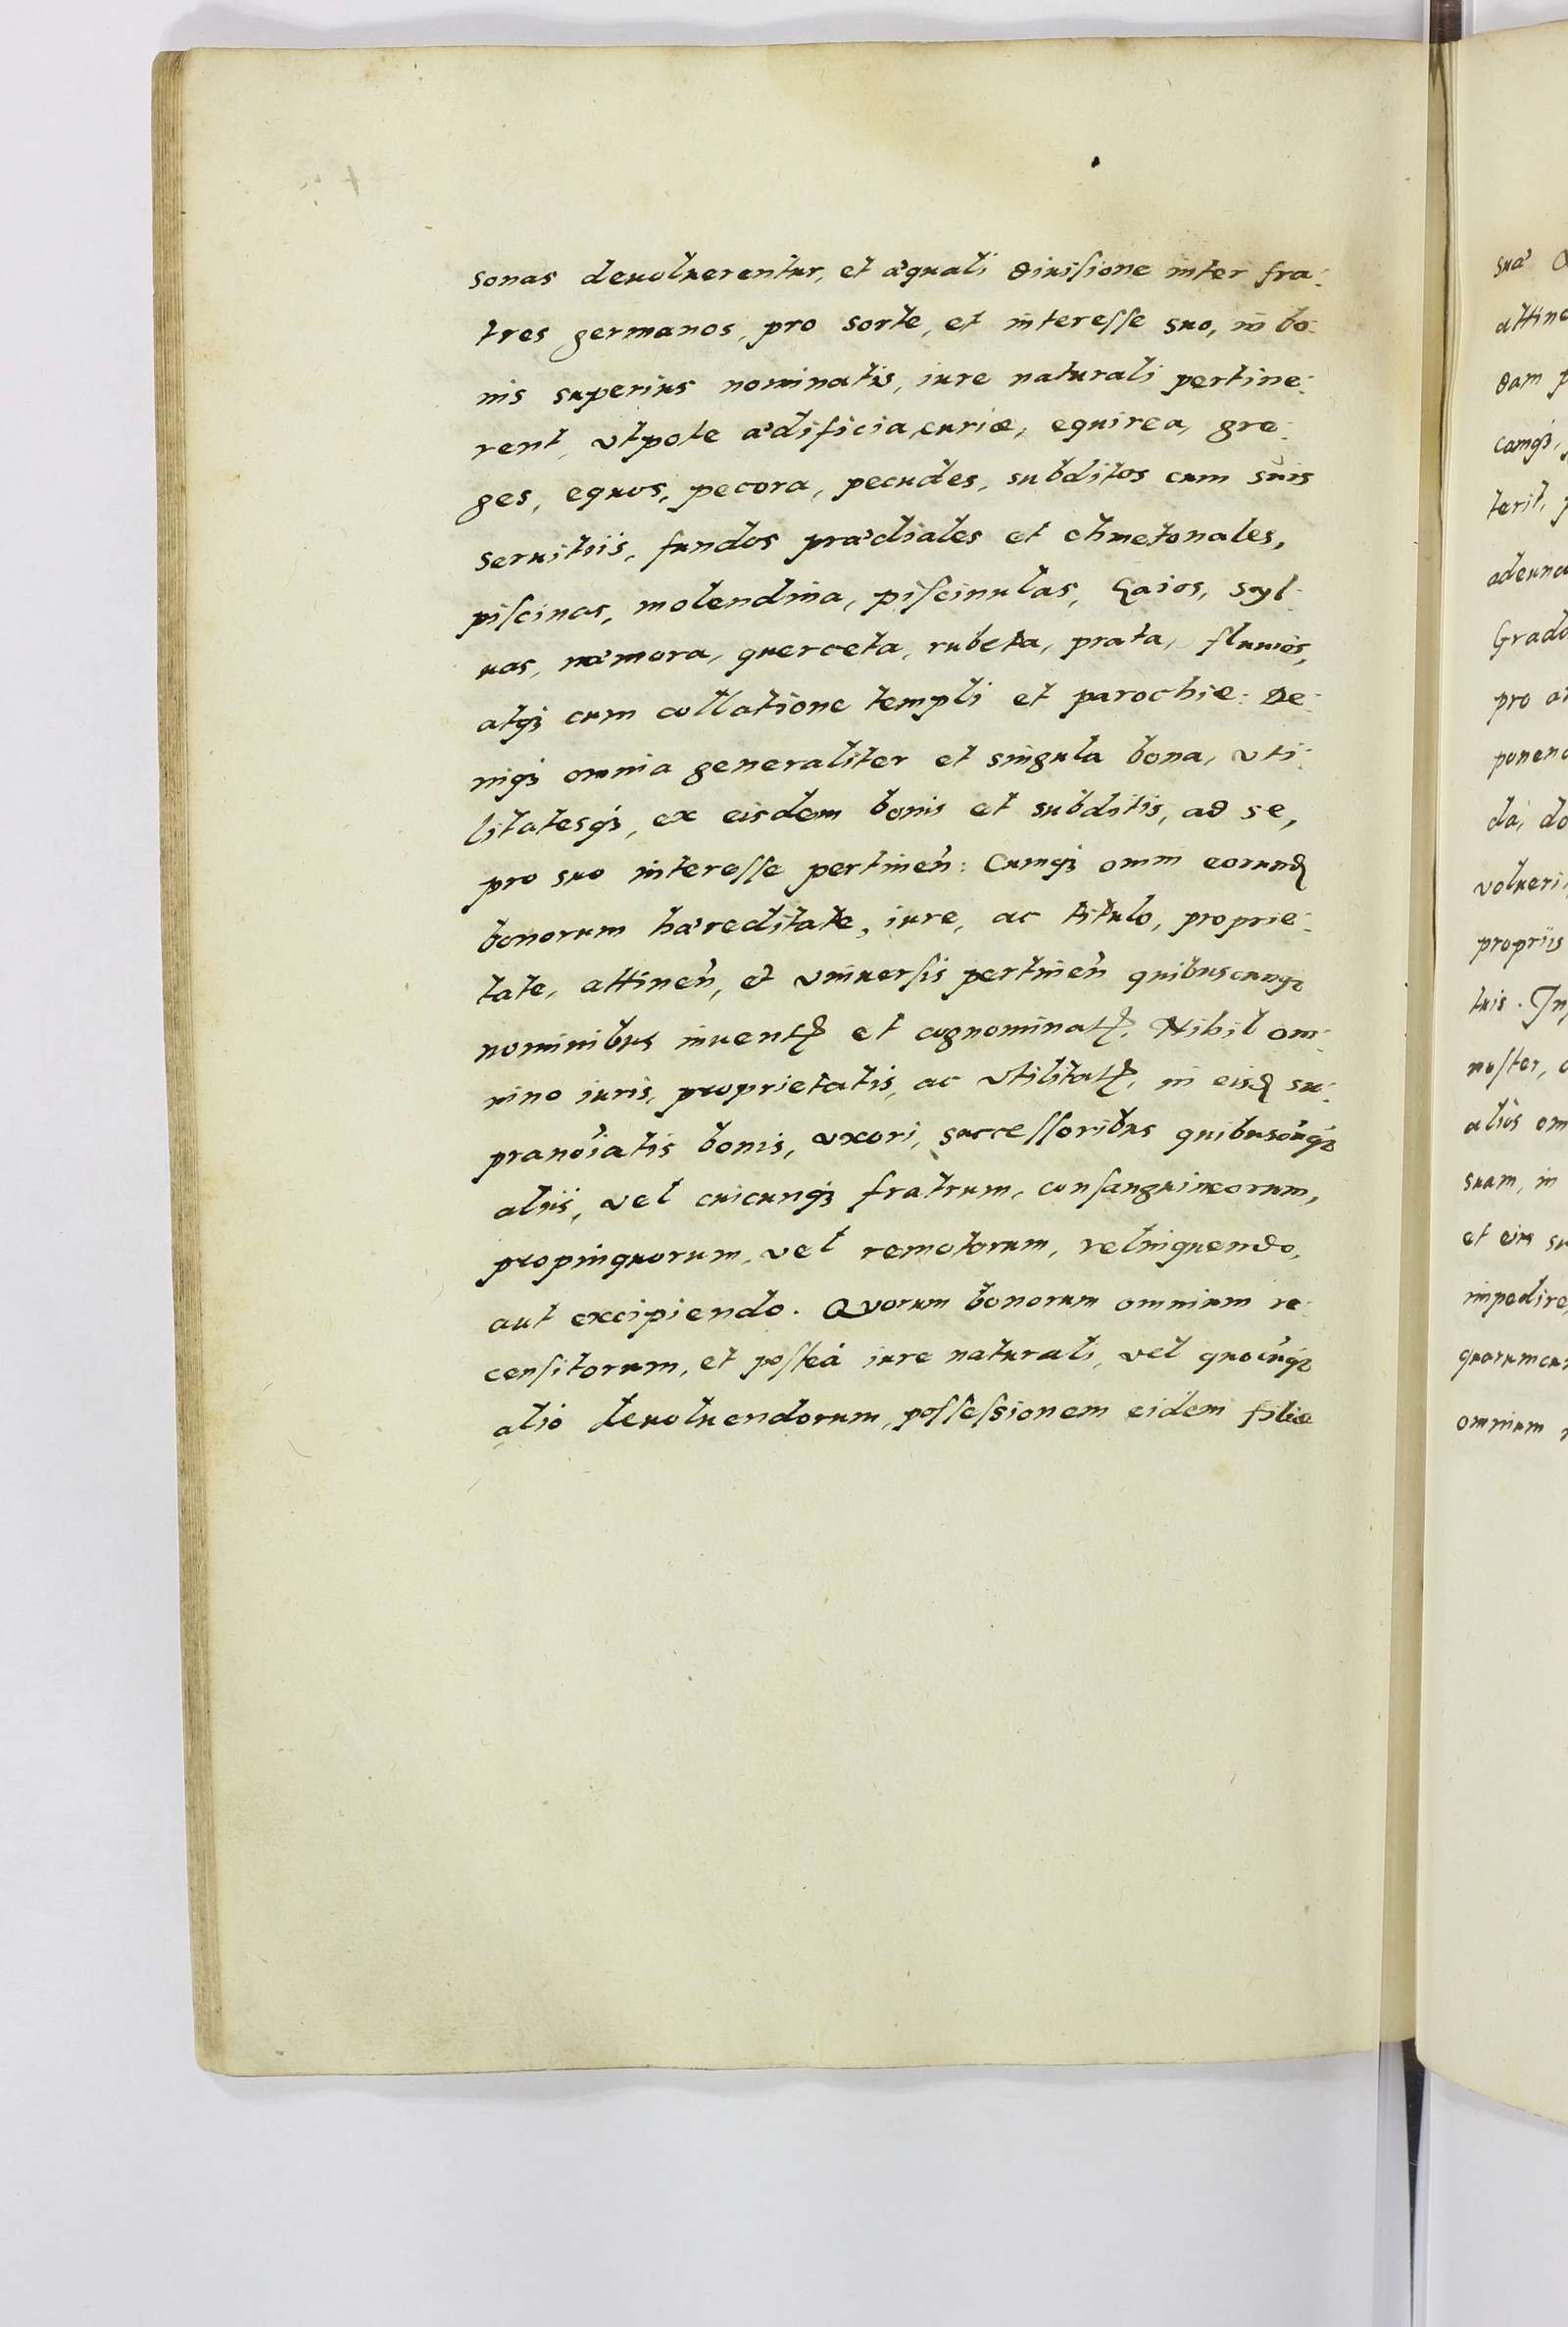 sonas deuoluerentur, et æquali diuisione inter fra:
tres germanos, pro sorte, et interesse suo, in bo:
nis superius nominatis, iure naturali pertine:
rent, vtpote ædificia, curiæ, equirea, gre:
ges, equos, pecora, pecudes, subditos cum suis
seruitiis, fundos prædiales et chmetonales,
piscinas, molendina, piscinulas, Gaios, Syl:
uas, næmora, querceta, rubeta, prata, fluuios,
atqꝫ cum collatione templi et parochiæ: De:
niqꝫ omnia generaliter et singula bona, vti:
litatesqꝫ, ex eisdem bonis et subditis, ad se,
pro suo interesse pertineñ: Cumqꝫ omni eorunđ
bonorum hæreditate, iure, ac titulo, proprie:
tate, attineñ, et vniuersis pertineñ quibuscunqꝫ
nominibus inuentꝭ et cognominatꝭ. Nihil om:
nino iuris, proprietatis, ac vtilitatꝭ, in eisđ su:
pranōiatis bonis, vxori, successoribus quibuscūqꝫ
aliis, vel cuicunqꝫ fratrum, consanguineorum,
propinquorum, vel remotorum, relinquendo,
aut excipiendo. Quorum bonorum omnium re:
censitorum, et posteà iure naturali, vel quocūqꝫ
alio deuoluendorum, possessionem eidem filiæ
suæ
attine
dam p
camqꝫ,
terit,
adeund
Grado
pro
ponend
dà, do
volueri
propriis
tuis. In
noster,
aliòs om
suam, in
et eius su
impedire,
quarumcun
omnium